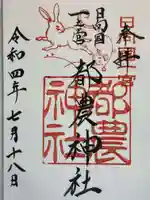 奉拝
日向國
一之宮
都農神社
都農
神社
令和四年
七月十八日